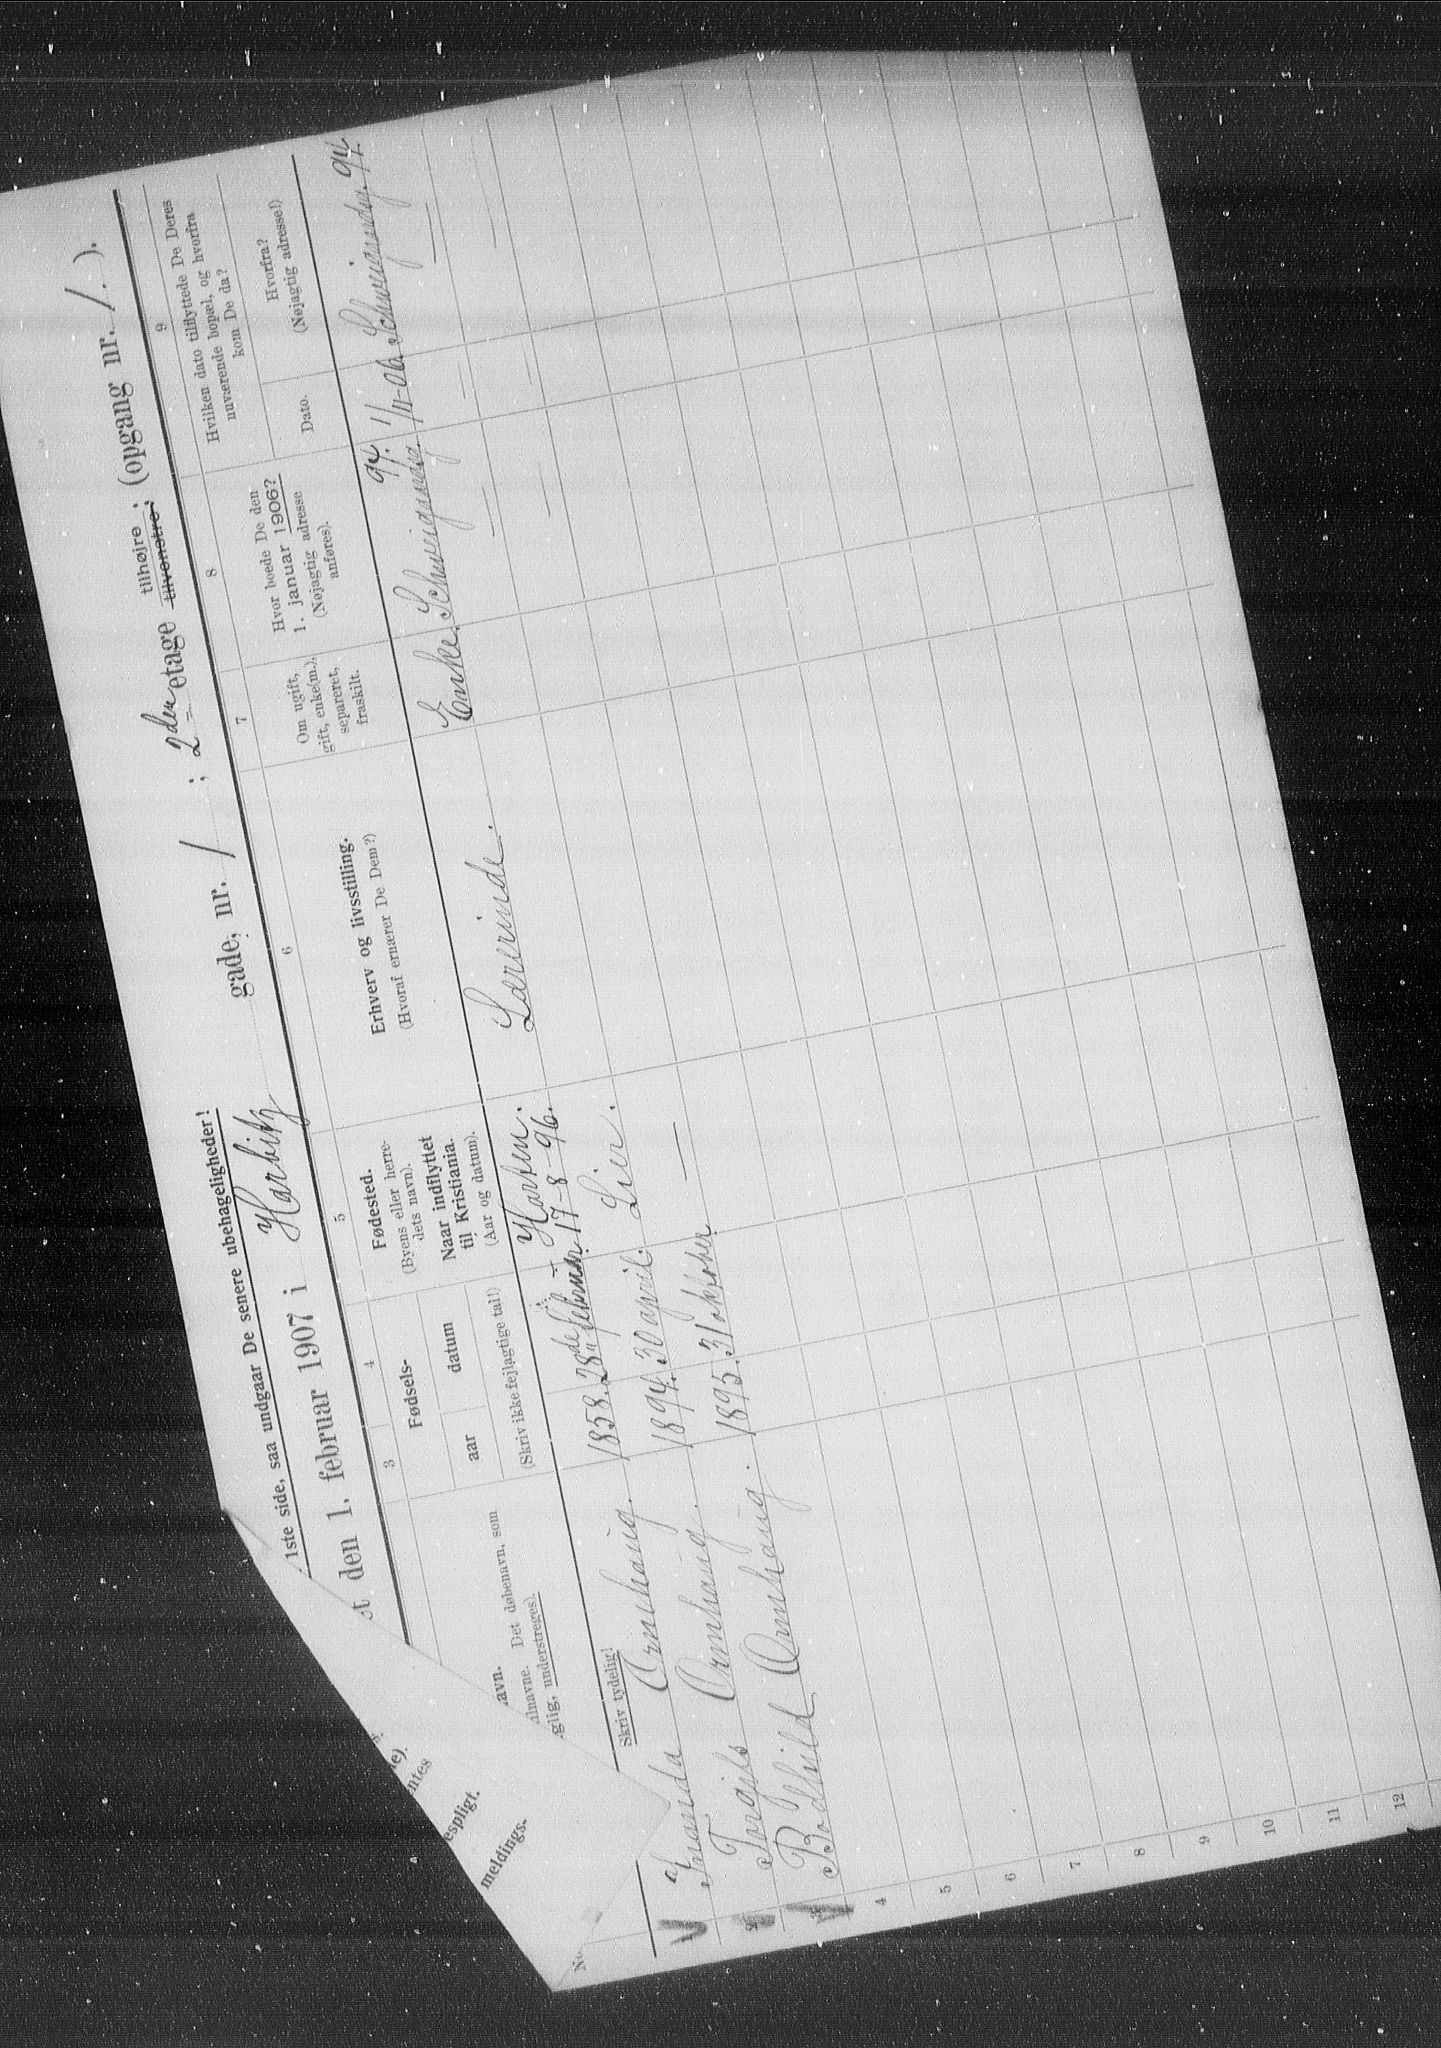 1ste side, saa undgaar De senere ubehageligheder!
t den 1. februar 1907 i Harbitz gade, nr. 1 ; 2den etage tilhøjre ; tilvenstre ; (opgang nr. 1 ).
3
4
5
6
7
8
9
avn.
Det døbenavn, som
glig, understreges).
Skriv tydelig!
Fødsels-
aar
datum
(Skriv ikke fejlagtige tal!)
Fødested.
(Byens eller herre-
dets navn).
Naar indflyttet
til Kristiania.
(Aar og datum).
Erhverv og livsstilling.
(Hvoraf ernærer De Dem?)
Om ugift,
gift, enke(m.),
separeret,
fraskilt.
Hvor boede De den
1. januar 1906?
(Nøjagtig adresse
anføres).
Hvilken dato tilflyttede De Deres
nuværende bopæl, og hvorfra
kom De da?
Dato.
Hvorfra?
(Nøjagtig adresse!)
Amanda Arnehaug. 1858. 28de februar. Horten. 17-8-96. Lærerinde. Enke. Schweigaardsg. 94. 1/11-06. Schweigaardsg. 94
Torgils Arnehaug. 1894. 30 april. Lier. — — — —
Bodhild Arnehaug. 1895. 31 oktober. — — — —
4
5
6
7
8
9
10
11
12
espligt.
meldings.